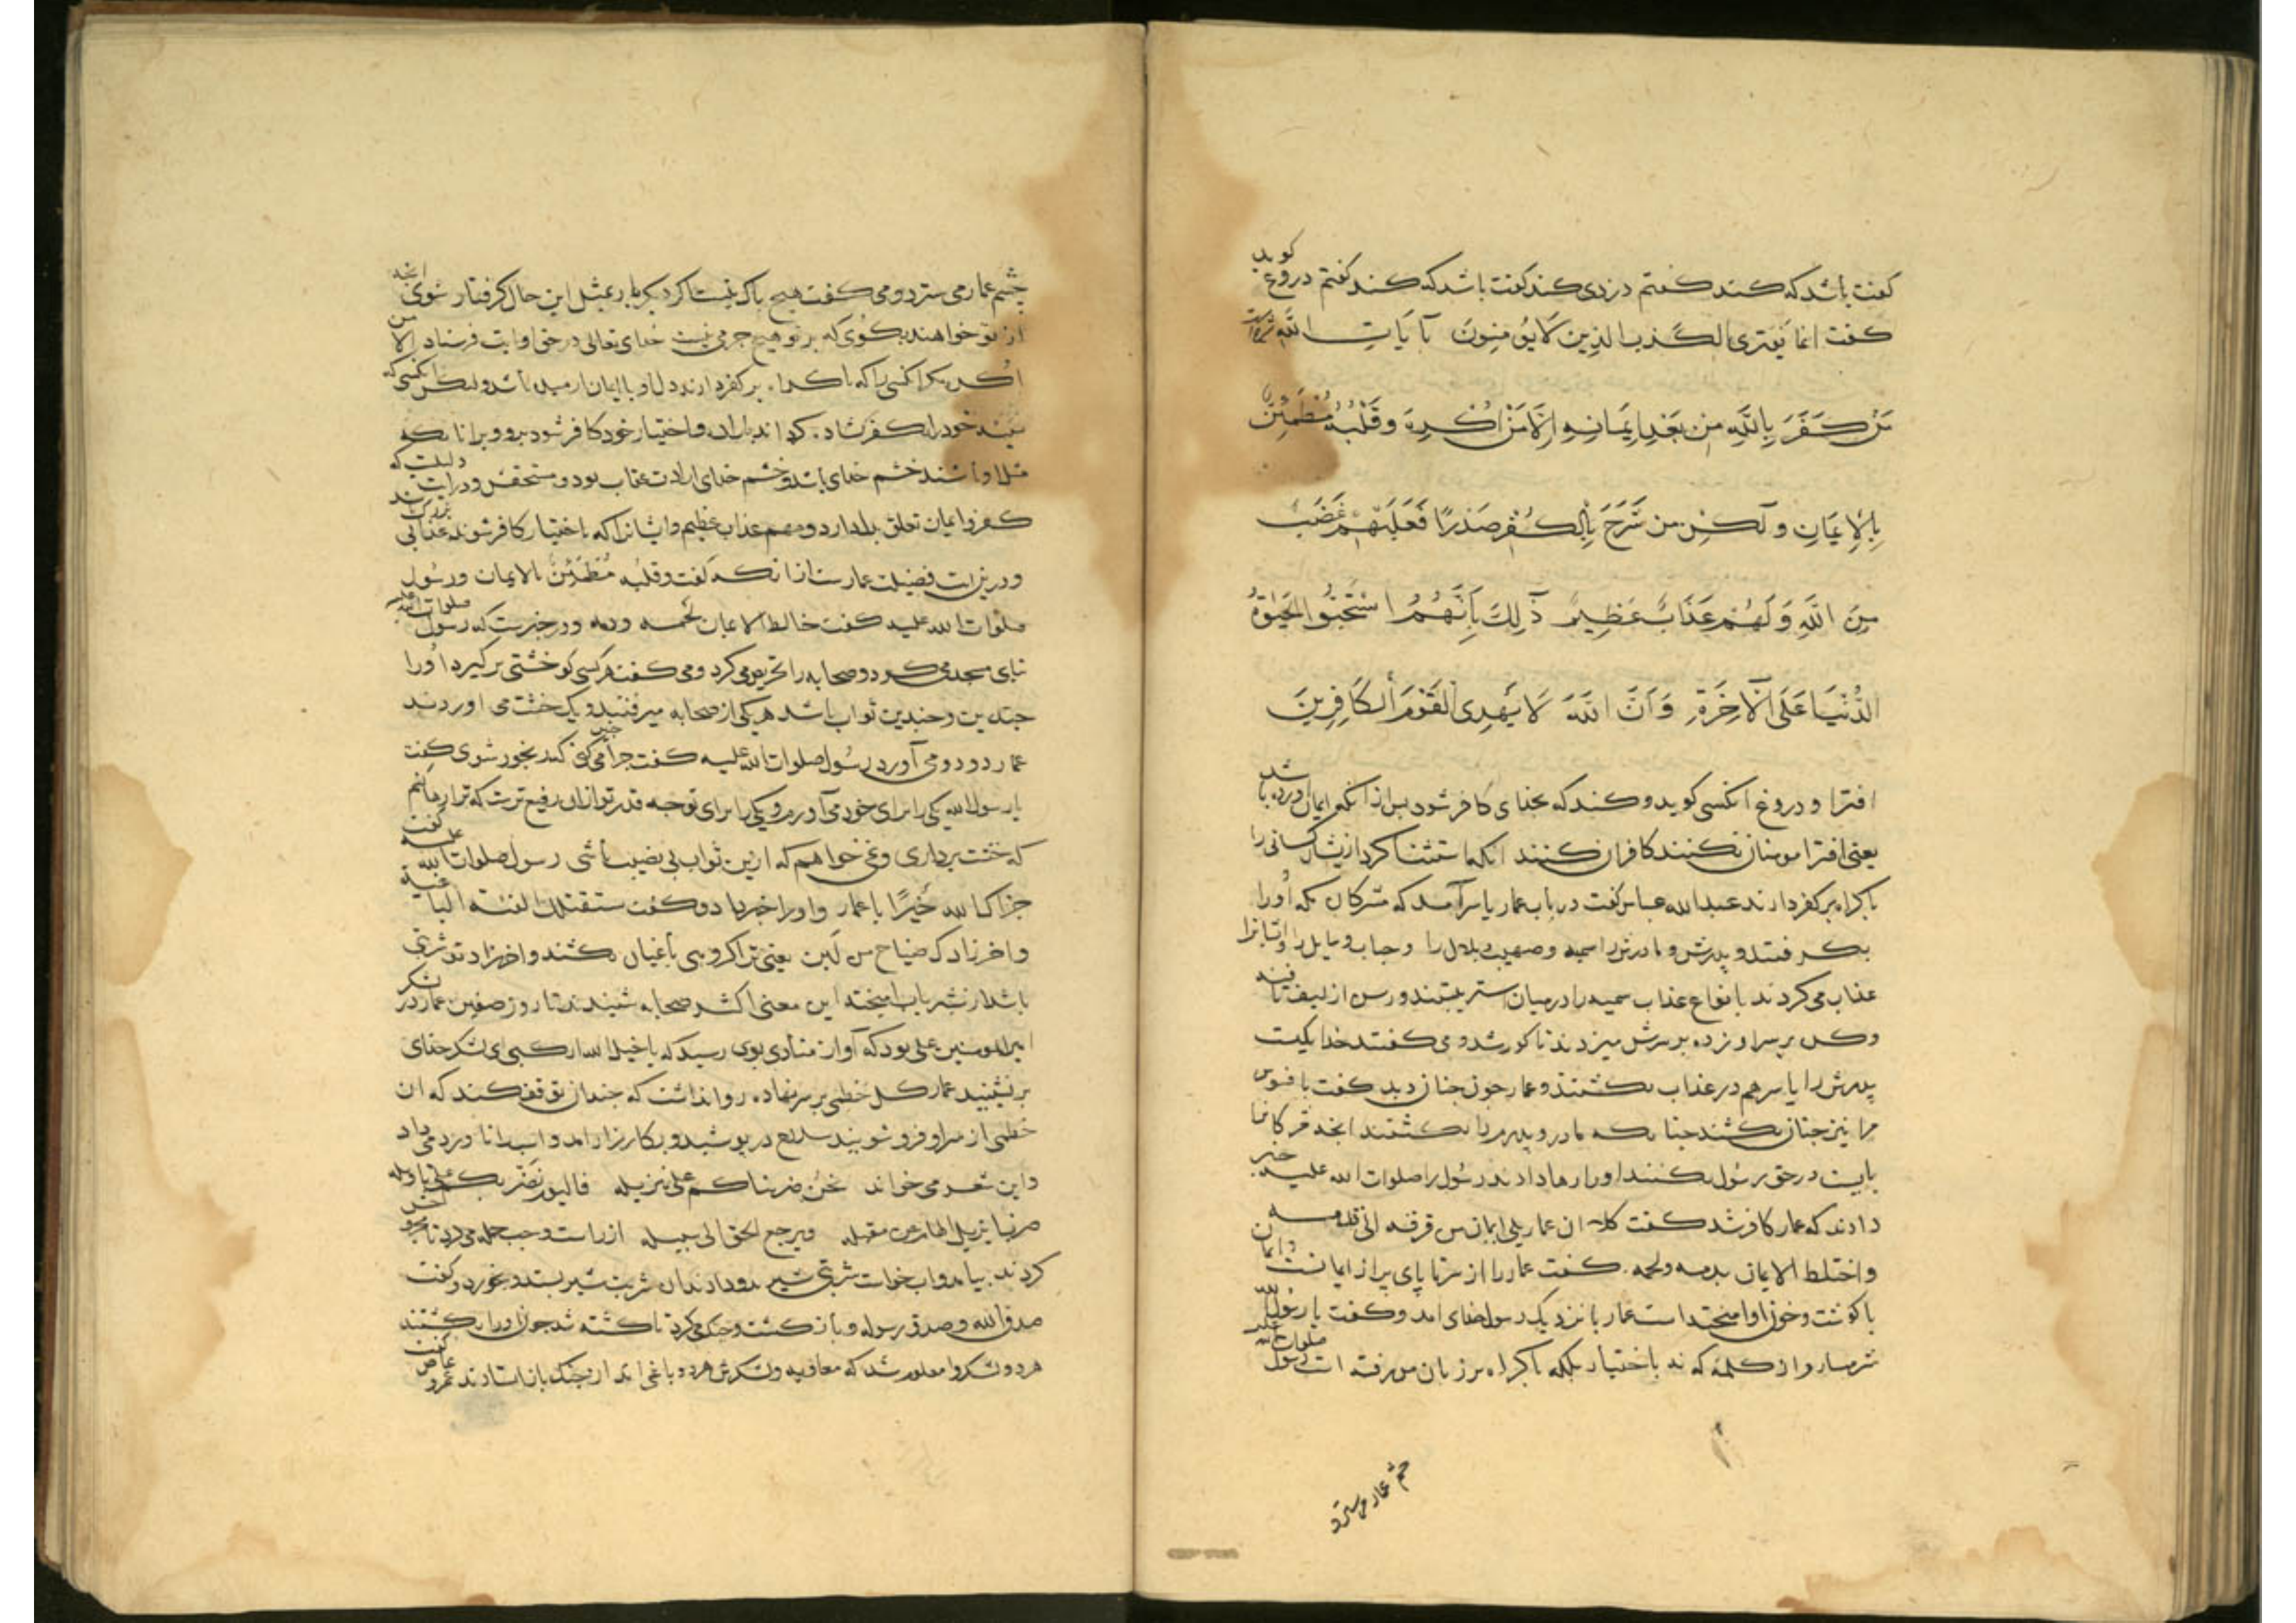 گوید
گفت باشد که کند گفتم دزدی کند گفت باشد که کند گفتم دروغ
گفت انما یفتری الکذب الذین لا یؤمنون بآیات الله
مَن کَفَرَ بِاللَّهِ مِن بَعْدِ اِیمَانِهِ اِلَّا مَنْ اُکْرِهَ وَقَلْبُهُ مُطْمَئِنٌّ
بِالْاِیمَانِ وَلٰکِن مَن شَرَحَ بِالْکُفْرِ صَدْرًا فَعَلَیْهِمْ غَضَبٌ
مِنَ اللَّهِ وَلَهُمْ عَذَابٌ عَظِیمٌ ذٰلِكَ بِاَنَّهُمُ اسْتَحَبُّوا الْحَیٰوةَ
الدُّنْیَا عَلَی الْآخِرَةِ وَاَنَّ اللَّهَ لَا یَهْدِی الْقَوْمَ الْکَافِرِینَ
افترا و دروغ انکسی کوید و کند که بخدای کافر شود بس از انکه ایمان اورده باشد
یعنی افترا مومنان نکنند کافران کنند انکه استثنا کرد ازیشان کسانی را
باکراه بر کفر دارند عبدالله عباس گفت در باب عمار یاسر آمد که مشرکان مکه اورا
بکرفتند و پدرش و مادرش را سمیه و صهیب و بلال را و خباب و
عذاب می کردند بانواع عذاب سمیه را در میان استر ببستند و رسن از لیف تافته
بر سر او زده بر سرش میزدند تا کور شد و می گفتند خدا یکیست
پدرش را یاسر هم در عذاب بکشتند و عمار جون جنان دید گفت
مرا نیز جنان بکشند جنانکه مادر و پدر مرا بکشتند انجه
بایست در حق رسول بگفت اورا رها دادند رسول را صلوات الله علیه خبر
دادند که عمار کافر شد گفت کلا ان عمار ملی ایمانا من قرنه الی قدمه
و اختلط الایمان بدمه و لحمه گفت عمار را از سر تا پای پر از ایمانست و ایمان
با کوشت و خون او امیخته است عمار بنزدیک رسول خدای امد و گفت یا رسول الله
شرمسارم از کلمه که نه باختیار بلکه باکراه بر زبان من رفته است رسول صلوات الله علیه
چشم عمار می سترد
چشم عمار می سترد و می گفت هیچ باک نیست اکر دیکر بار بمثل این حال کرفتار شوی انجه
از تو خواهند بکوی که بر تو هیچ جرمی نیست خدای تعالی در حق او ایت فرستاد الا من
اکره مکر انکسی را که باکراه بر کفر دارند و دل او با ایمان ارمیده باشد ولکن انکسی که
خود را بکفر کشاده کرداند و باختیار خود کافر شود برو و بر انانکه
مثل او باشند خشم خدای باشد و خشم خدای ارادت عقاب بود و در ایت دلیلست که
کفر و ایمان تعلق بدل دارد و لهم عذاب عظیم و ایشانرا که باختیار کافر شوند عذابی بزرگ
و درین ایت فضیلت عمارست ازانکه گفت و قلبه مُطْمَئِنٌّ بالایمان و رسول
صلوات الله علیه گفت خالط الایمان لحمه و دمه و در خبرست که رسول صلوات الله علیه
بنای مسجد می کرد و صحابه را تحریض می کرد و می گفت هر کسی کو خشتی بر کیرد اورا
جندین و جندین ثواب باشد هر یکی از صحابه میرفتند و یک خشت می اوردند
عمار دو دو می آورد رسول صلوات الله علیه گفت جرا جنین می کنی رنجور شوی گفت
یا رسول الله یکی را برای خود می آورم و یکی را برای تو جه قدر تو ازان رفیع ترست که ترا رها کنم
که خشت برداری و نمی خواهم که ازین ثواب بی نصیب باشی رسول صلوات الله علیه گفت
جزاک الله خیرًا یا عمار و اورا خبر داد و گفت ستقتلک الفئة الباغیة
و اخر زادک ضیاح من لبن یعنی ترا کروهی باغیان بکشند و اخر زاد تو شربتی
باشد از شیر باب امیخته این معنی اکثر صحابه شنیدند تا روز صفین عمار در لشکر
امیرالمومنین علی بود که آواز منادی بوی رسید که یا خیل الله ارکبی ای لشکر خدای
بر نشینید عمار کل خطمی بر سر نهاده روا نداشت که جندان توقف کند که ان
خطمی از سر او فرو شویند سلاح در پوشید و بکارزار امد و اسب را تاو می داد
و این شعر می خواند نحن ضربناکم علی تنزیله فالیوم نضربکم علی تاویله
ضربا یزیل الهام عن مقیله و یرجع الحق الی سبیله از راست و جب حمله می کرد تا
کردند بیامد و اب خواست شربتی شیر بدو دادند ان شربت شیر بستد و بخورد و گفت
صدق الله و صدق رسوله و باز کشت و جنک می کرد تا کشته شد جون اورا بکشتند
هر دو لشکر را معلوم شد که معاویه و لشکرش هر دو باغی اند از جنک باز استادند عمرو عاص گفت